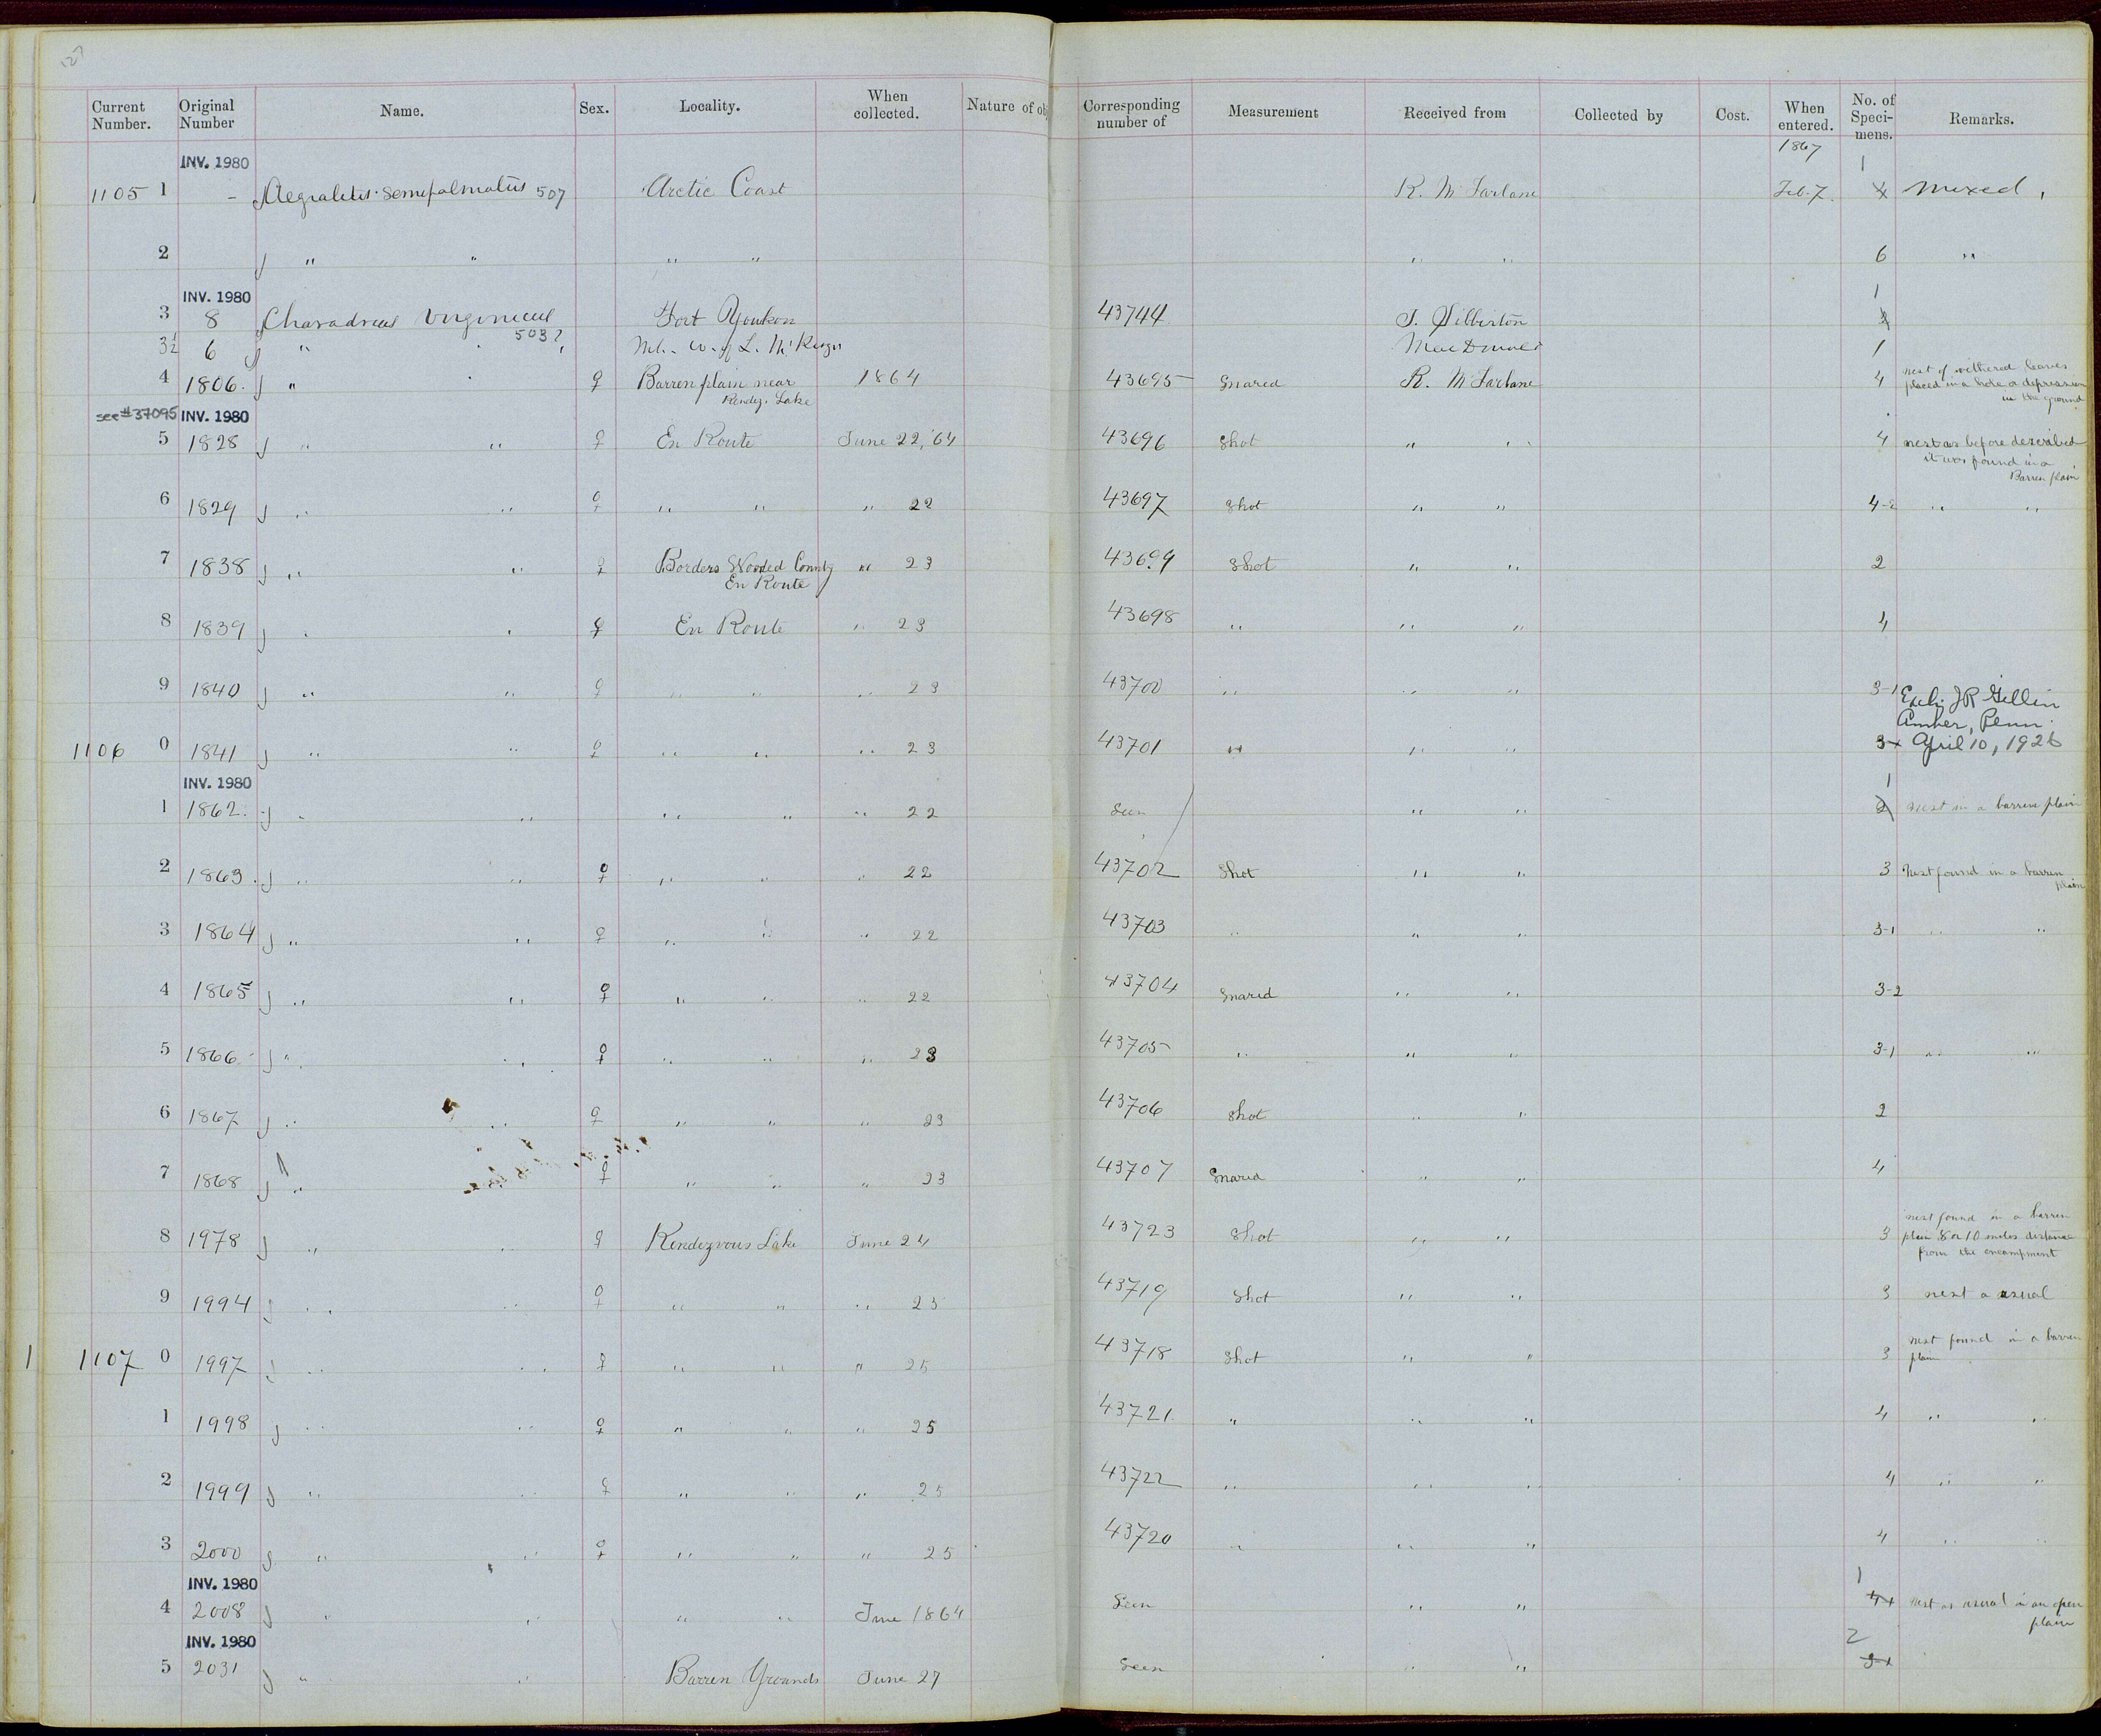 Current Number. Original Number Name. Sex. Locality. When collected. Nature of ob Corresponding number of Measurement Received from Collected by Cost. When entered. No. of Specimens. Remarks.
1867
INV. 1980 1
1105 1 - Aegialitis semipalmatus 507 Arctic Coast R. McFarlane Feb. 7. 4 mixed
2 " " " " " " 6 "
INV. 1980 1
3 8 Charadrius virginicus Fort Youkon 43744 S. Sibberton
503?
3½ 6 " " W. of L. McKenzie MacDonald 1
4 1806. " " ♀ Barren plain near Rendez. Lake 1864 43695 Snared R. McFarlane 4 nest of withered leaves placed in a hole or depression in the ground
see #37095 INV. 1980
5 1828 " " ♀ En Route June 22, '64 43696 Shot " " 4 nest as before described it was found in a Barren plain
6 1829 " " ♀ " " " 22 43697 Shot " " 4-2 " "
7 1838 " " ♀ Borders Wooded County En Route " 23 43699 Shot " " 2
8 1839 " " ♀ En Route " 23 43698 " " " 4
9 1840 " " ♀ " " " 23 43700 " " " 3-1 Exch. JR Gillin
Amber, Penn.
1106 0 1841 " " ♀ " " " 23 43701 " " " 3 April 10, 1926
INV. 1980 1
1 1862. " " " " " 22 Seen " " 2 nest in a barren plain
2 1863. " " ♀ " " " 22 43702 Shot " " 3 Nest found in a barren plain
3 1864 " " ♀ " " " 22 43703 " " " 3-1 " "
4 1865 " " ♀ " " " 22 43704 Snared " " 3-2
5 1866 " " ♀ " " " 23 43705 " " " 3-1 " "
6 1867 " " ♀ " " " 23 43706 Shot " " 2
7 1868 " ♀ " " " 23 43707 Snared " " 4
8 1978 " " ♀ Rendezvous Lake June 24 43723 Shot " " 3 nest found in a barren plain 8 or 10 miles distance from the encampment
9 1994 " " ♀ " " " 25 43719 Shot " " 3 nest as usual
1107 0 1997 " " ♀ " " " 25 43718 Shot " " 3 nest found in a barren plain
1 1998 " " ♀ " " " 25 43721 " " " 4 " "
2 1999 " " ♀ " " " 25 43722 " " " 4 " "
3 2000 " " ♀ " " " 25 43720 " " " 4 " "
INV. 1980 1
4 2008 " " " " June 1864 Seen " " 4 nest as usual in an open plain
INV. 1980 2
5 2031 " " Barren Grounds June 27 Seen " " 3